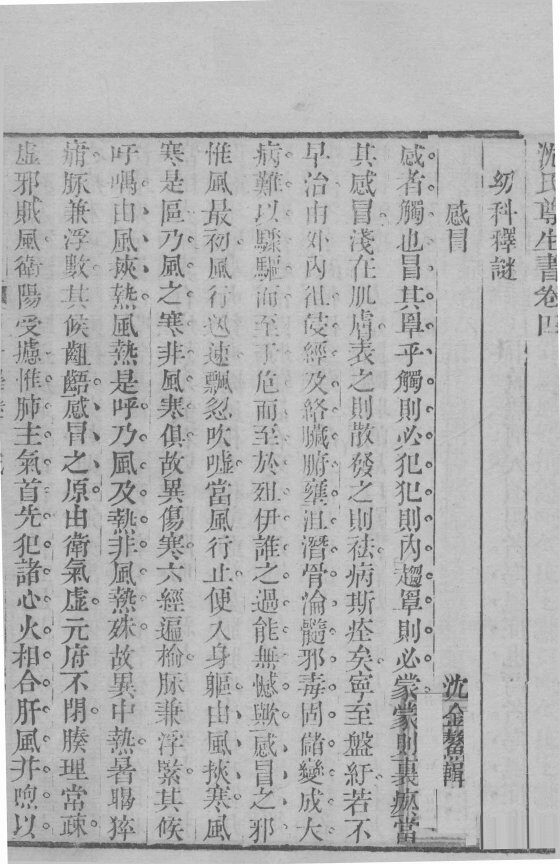 沈氏尊生書卷四
幼科釋謎
沈金鰲輯
感冒
感者觸也冒其罩乎觸則必犯犯則內趨罩則必蒙蒙則裏瘀當
其感冒淺在肌膚表之則散發之則祛病斯痊矣寧至盤紆若不
早治由外內徂侵經及絡臟腑壅沮潛骨淪髓邪毒固儲變成大
病難以驟驅而至於危而至於殂伊誰之過能無憾歟感冒之邪
惟風最初風行迅速飄忽吹噓當風行止便入身軀由風挾寒風
寒是區乃風之寒非風寒俱故異傷寒六經遍楡脈兼浮緊其候
吁嗎由風挾熱風熱是呼乃風及熱非風熱殊故異中熱暑暍猝
痡脈兼浮數其候齟齬感冒之原由衛氣虛元府不閉腠理常疎
虛邪賊風衛陽受攄惟肺主氣首先犯諸心火相合肝風并喣以